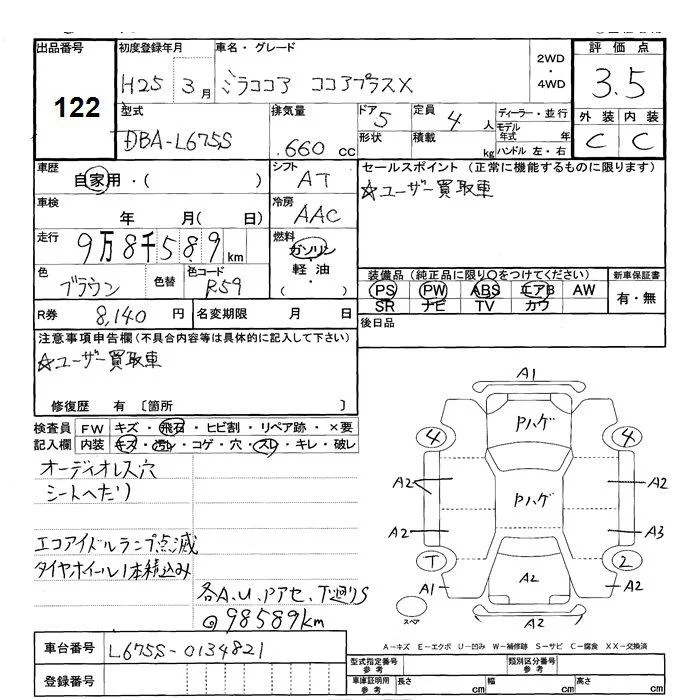 出品番号
122
初度登録年月
H25 3月
車名・グレード
ミラココア ココアプラスX
2WD
・
4WD
評価点
3.5
外装 内装
C C
型式
DBA-L675S
排気量
.660 cc
ドア
5
定員
4人
形状
積載
kg
ディーラー・並行
モデル年式 年
ハンドル 左・右
車歴
自家用・( )
シフト
AT
セールスポイント(正常に機能するものに限ります)
☆ユーザー買取車
車検
年 月( 日)
冷房
AAC
走行
9万8千589km
燃料
ガソリン
・
軽油
・
( )
色
ブラウン
色替
色コード
R59
装備品(純正品に限り○をつけてください)
新車保証書
PS PW ABS エアB AW
SR ナビ TV カワ
有・無
R券 8,140円
名変期限 月 日
後日品
注意事項申告欄(不具合内容等は具体的に記入して下さい)
☆ユーザー買取車
修復歴 有 〔箇所 〕
検査員記入欄
FW キズ・飛石・ヒビ割・リペア跡・×要
内装 キズ・汚レ・コゲ・穴・スレ・キレ・破レ
オーディオレス穴
シートへたり
エコアイドルランプ点滅
タイヤホイール1本積込み
各A.U.Pアセ、下廻りS
@98589km
A1
Pハゲ
4 4
A2 A2
Pハゲ
A2 A3
T 2
A1 A2 A2
スペア
A2
A-キズ E-エクボ U-凹み W-補修跡 S-サビ C-腐食 XX-交換済
車台番号
L675S-0134821
登録番号
型式指定番号
参考
類別区分番号
参考
車庫証明用
参考
長さ cm 幅 cm 高さ cm